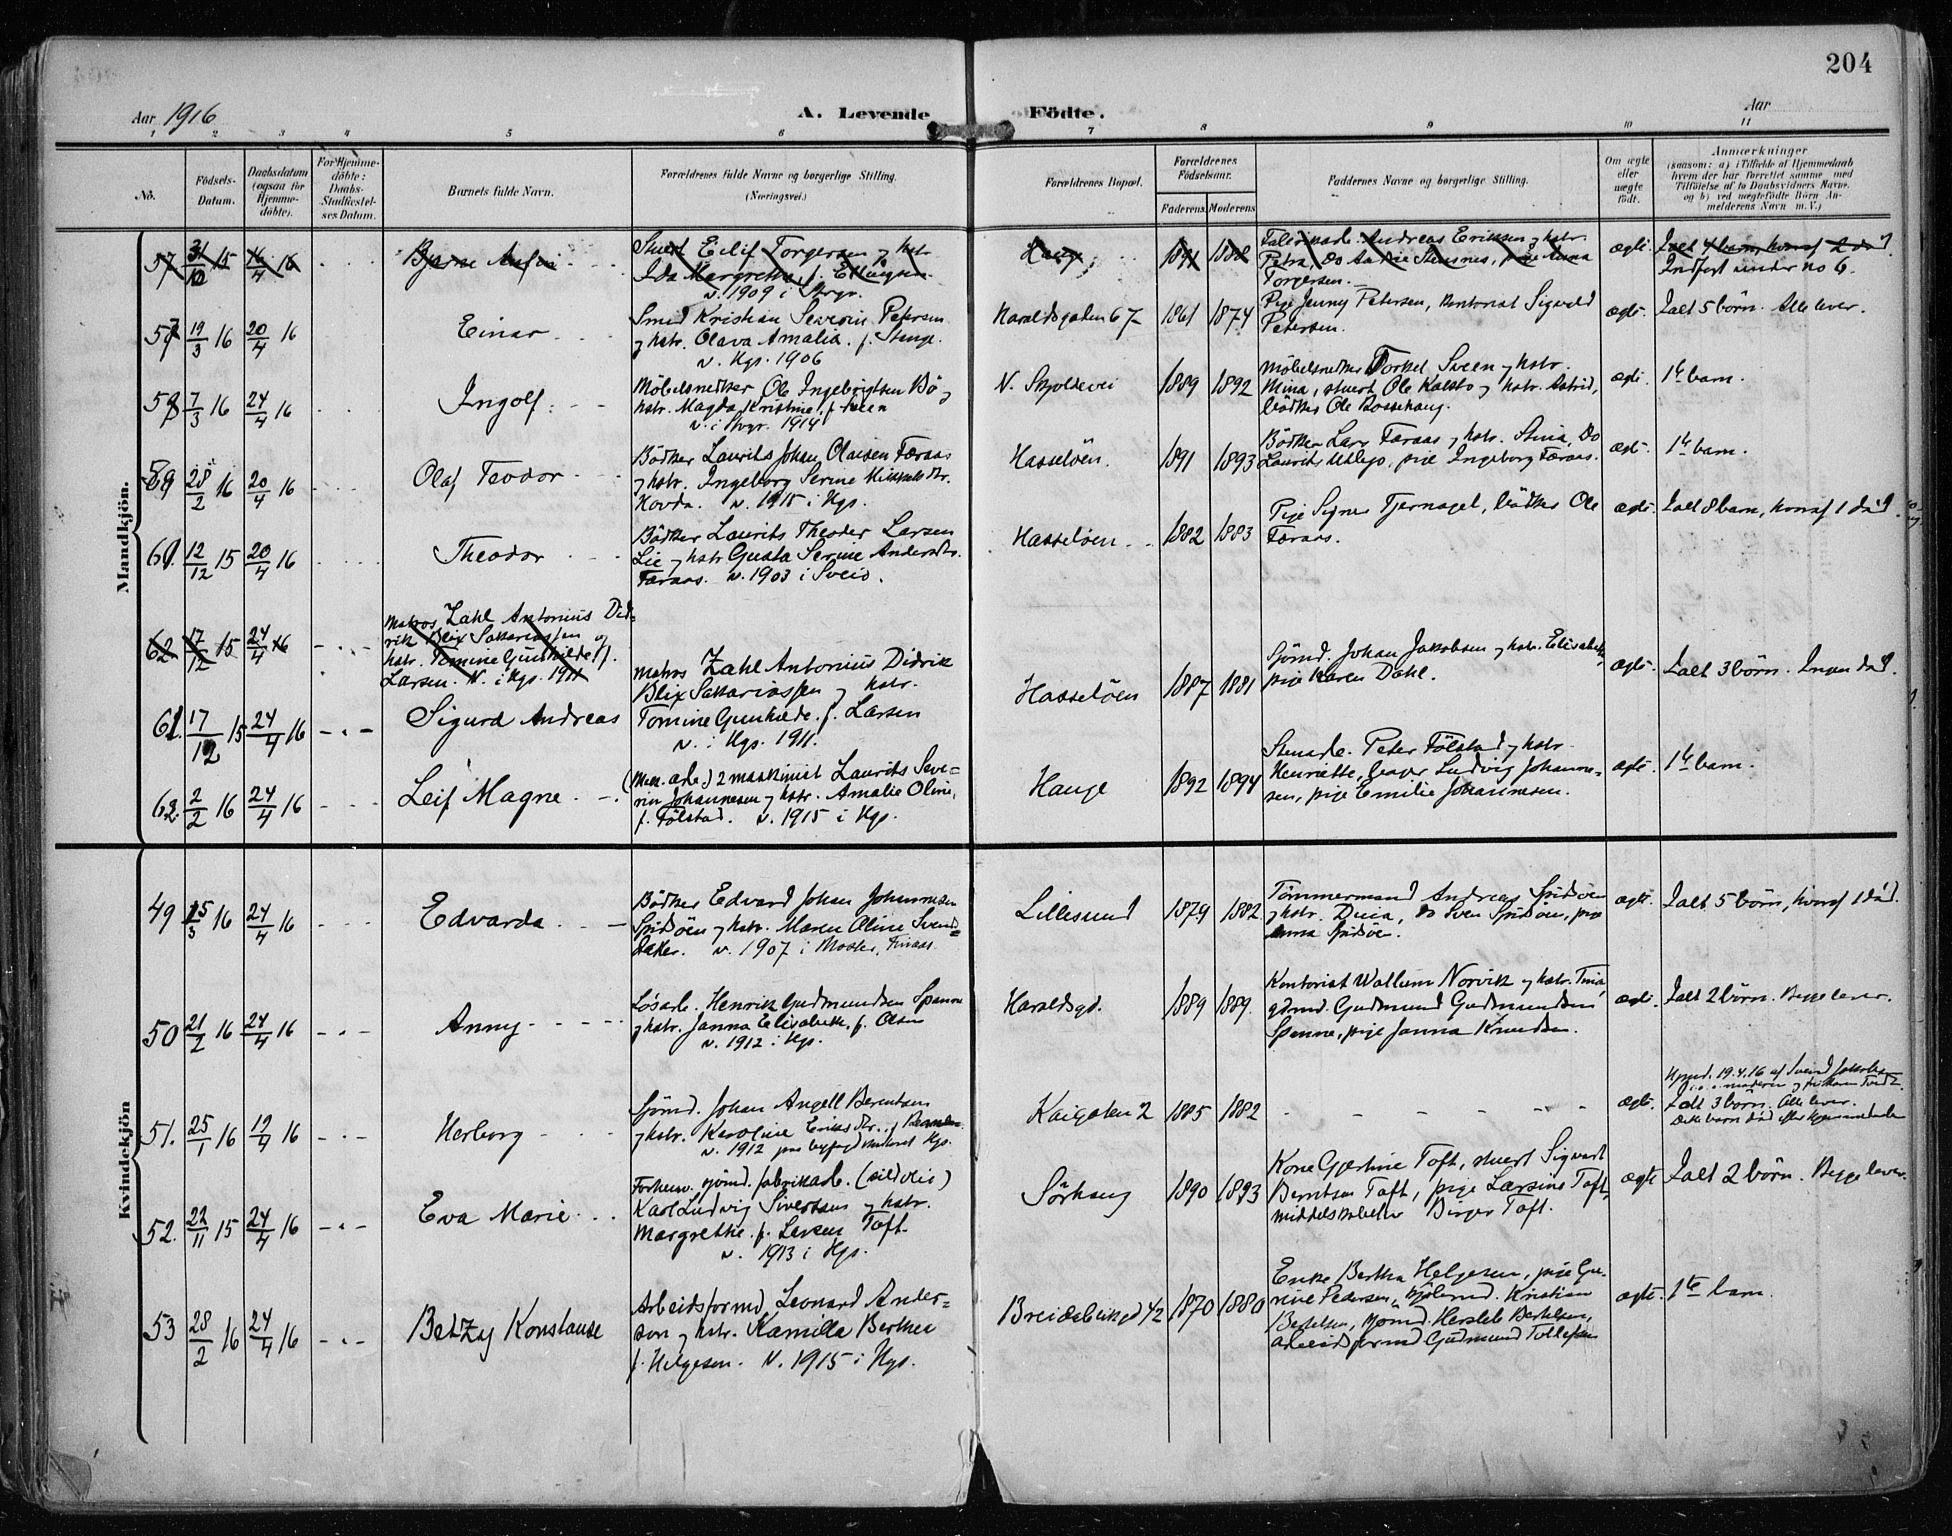 204
Aar 1916
A. Levende Födte.
Aar
1 2 3 4 5 6 7 8 9 10 11
No.
Födsels-
Datum.
Daabsdatum
(ogsaa for
Hjemme-
döbte).
For Hjemme-
döbte:
Daabs-
Stadfæstel-
ses Datum.
Barnets fulde Navn.
Forældrenes fulde Navne og borgerlige Stilling.
(Næringsvei.)
Forældrenes Bopæl.
Forældrenes
Födselsaar.
Faderens. Moderens.
Faddernes Navne og borgerlige Stilling.
Om ægte
eller
uægte
födt.
Anmærkninger
(saasom: a) i Tilfælde af Hjemmedaab
hvem der har forrettet samme med
Tilföielse af to Daabsvidners Navne,
og b) ved uægtefödte Börn An-
melderens Navn m. V.)
Mandkjön.
57 31/10 15 16/4 16
Bjarne
Eilif Torgersen og hstr.
Ida Margrethe f. Ellingsen
v. 1909 i
Hauge
1891 1888
Andreas Eriksen og hstr.
Petra, Do
Torgersen.
ægte
Ialt 4 barn, hvoraf 2 död
Indført under no 6.
57 19/3 16 20/4 16
Einar
Smed Kristian Severin Petersen
og hstr. Olava Amalia f. Stange.
v. Hgs. 1906
Haraldsgaten 67
1861 1874
Pige Jenny Petersen, kontorist Sigvald
Petersen.
ægte.
Ialt 5 börn. Alle lever.
58 7/3 16 24/4 16
Ingolf
Möbelsnedker Ole Ingebrigtsen Bö og
hstr. Magda Kristine f. Sveen
v. i 1914
N. Skjoldevei
1889 1892
Möbelsnedker Torkel Sveen og hstr.
Mina, stuert Ole Kalstö og hstr. Astrid,
bödker Ole Rossehaug.
ægte
1te barn.
59 28/2 16 20/4 16
Olaf Teodor
Bödker Laurits Johan Olausen Færaas
og hstr. Ingeborg Serine Mikkelsdtr.
Hovda. v. 1915 i Hgs.
Hasselöen.
1891 1893
Bödker Lars Færaas og hstr. Stina, Do
Laurits, pige Ingeborg Færaas.
ægte.
1te barn.
60. 12/12 15 20/4 16
Theodor
Bödker Laurits Theodor Larsen
Lie og hstr Gusta Serine Andersdtr.
Færaas. v. 1903 i Sveio.
Hasselöen
1882 1883
Pige Signe Tjernagel, bödker Ole
Færaas.
ægte.
Ialt 8 barn, hvoraf 1 död.
62 17/12 15 24/4 16
Matros Zahl Antonius Did-
rik Blix Sakariassen og
hstr. Tomine Gunhilde f.
Larsen. v. i Hgs. 1911
61. 17/12 15 24/4 16
Sigurd Andreas
Matros Zahl Antonius Didrik
Blix Sakariassen og hstr.
Tomine Gunhilde f. Larsen
v. i Hgs. 1911.
Hasselöen
1887 1881
Sjömd. Johan Jakobsen og hstr. Elisabeth,
pige Karen Dahl.
ægte.
Ialt 3 börn. Ingen död.
62. 2/2 16 24/4 16
Leif Magne
2 maskinist Laurits Seve-
rin Johannesen og hstr. Amalie Oline,
f. Fölstad. v. 1915 i Hgs.
Hauge
1892 1894
Peter Fölstad og hstr.
Henriette, Ludvig Johanne-
sen, pige Emilie Johannesen.
ægte.
1te barn.
Kvindekjön
49 15/3 16 24/4 16
Edvarda
Bödker Edvard Johan Johannesen
Spidsöen og hstr. Maren Oline Svend-
v. 1907 i Moster, Finaas
Lillesund
1879 1882
Tömmermand Andreas Spidsöen
og hstr. Dina, do Sven Spidsöen, pige
Anna Spidsöen.
ægte.
Ialt 5 börn, hvoraf 1 död.
50 21/2 16 24/4 16
Anny
Lösarb. Henrik Gudmundsen Spanne
og hstr. Janna Elisabeth f. Olsen
v. 1912 i Hgs.
Haraldsgd.
1889 1889.
Kontorist Wallum Norvik og hstr. Tina,
Gudmund Gudmundsen
Spanne, pige Janna Knudsen.
ægte.
Ialt 2 börn. Begge lever.
51. 25/1 16 19/4 16
Herborg
Sjömd. Johan Angell Berentsen
og hstr. Karoline Eriksdtr.
v. 1912 Hgs.
Kaigaten 2
1885 1882
ægte.
Hjmd. 19.4.16 af Svend Jakobsen
Ialt 3 börn. Alle lever.
Dette barn död efter hjemmedaaben
52. 22/11 15 24/4 16
Eva Marie
sjömd. fabrikarb. (sildolie)
Karl Ludvig Sivertsen og hstr.
Margrethe f. Larsen Toft
v. 1913 i Hgs.
Sörhaug
1890 1893
Kone Gjertine Toft, stuert Sigvart
Berntsen Toft, pige Larsine Toft,
middelskoleelev Birger Toft.
ægte
Ialt 2 börn. Begge lever.
53 28/2 16 24/4 16
Betzy Konstanse
Arbeidsformd Leonard Ander-
sen og hstr. Kamilla Berthea
f. Helgesen. v. 1915 i Hgs.
Breidablikgd 42
1870 1880
Enke Bertha Helgesen, pige Gu-
rine Pedersen, Kristian
Bertelsen, sjömd. Hersleb Bertelsen,
arbeidsformd Gudmund Tollefsen
ægte.
1te barn.